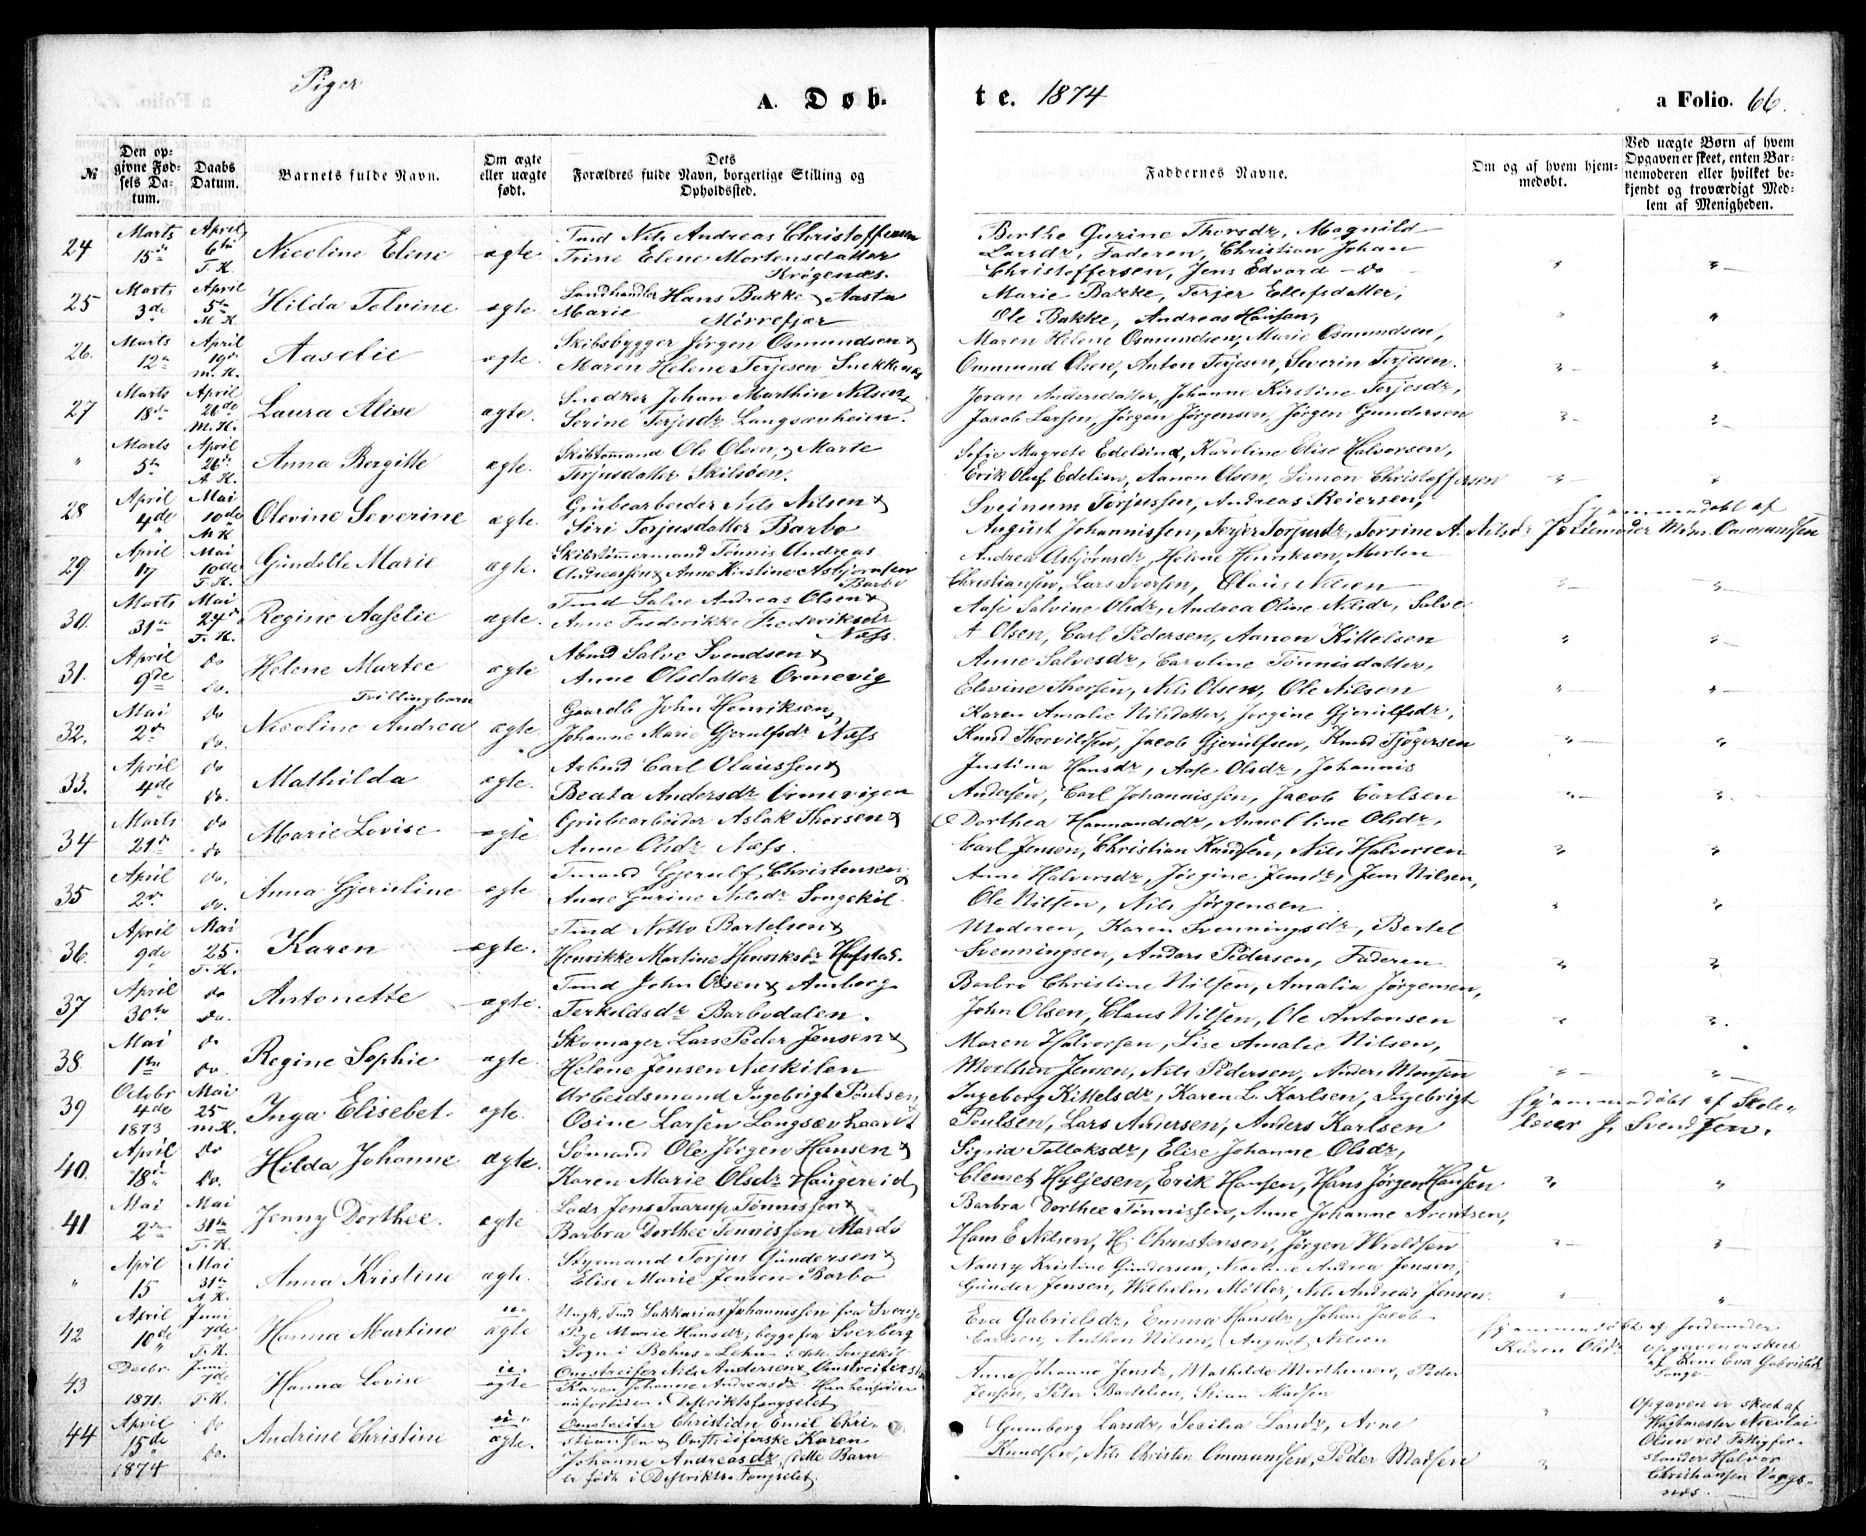 Piger
A. Døb-
te. 1874
a Folio. 66.
№
Den op-
givne Fød-
sels Da-
tum.
Daabs
Datum.
Barnets fulde Navn.
Om ægte
eller uægte
født.
Dets
Forældres fulde Navn, borgerlige Stilling og
Opholdssted.
Faddernes Navne.
Om og af hvem hjem-
medøbt.
Ved uægte Børn af hvem
Opgaven er skeet, enten Bar-
nemoderen eller hvilket be-
kjendt og troværdigt Med-
lem af Menigheden.
24 Marts 15de April 6te T. K. Nicoline Elene ægte
Tmd Nils Andreas Christoffersen
Trine Elene Mortensdatter
Krøgenæs.
Berthe Gurine Thorsdr, Magnild
Larsdr, Faderen, Christian Johan
Christoffersen, Jens Edvard - do
25 Marts 3de April 5te M. K. Hilda Tolvine ægte.
Landhandler Hans Bakke & Aasta
Marie Mörrefjær
Marie Bakke, Terjer Ellefsdatter,
Ole Bakke, Andreas Hansen,
26. Marts 12te April 19de M. K. Aaselie ægte.
Skibsbygger Jørgen Osmundsen &
Maren Helene Terjesen Snekkenæs
Maren Helene Osmundsen, Marie Osmundsen,
Ommund Olsen, Anton Terjesen, Severin Terjesen.
27 Marts 18de April 26de M. K. Laura Alise ægte.
Snedker Johan Marthin Nilsen &
Serine Terjesdr Langsævheien.
Joran Andersdatter, Johanne Kirstine Terjesdr,
Jacob Larsen, Jørgen Jørgensen, Jørgen Gundersen
" Marts 5te April 26de A. K. Anna Bergitte ægte.
Skibtømmand Ole Olsen, & Marte
Terjusdatter Skilsøen.
Sofie Magrete Edelsind, Karoline Elise Halvorsen,
Erik Oluf Edelsin, Aanon Olsen, Simon Christoffersen
28 April 4de Mai 10de M K Olevine Severine ægte.
Grubearbeider Nils Nilsen &
Siri Torjusdatter Barbo
Sveinum Torjussen, Andreas Reiersen,
August Johannissen, Terjer Torjusdr, Torrine A. Nilsdr
Hjemmedøbt af
Jordemoder Mdm. Ommundsen
29 April 17 Mai 10de T. K. Gundelle Marie ægte.
Skibstømmermand Tønnis Andreas
Andreassen & Anne Kirstine Asbjørnsen
Barbo
Andrea Asbjørnsdr, Helene Henriksen, Morten
Christiansen, Lars Iversen, Olaus Nilsen
30. Marts 31te Mai 24de T. K. Regine Aaselie ægte.
Tmd Salve Andreas Olsen &
Anne Frederikke Frederiksdr
Næss
Aase Salvine Olsdr, Andrea Oline Nilsdr, Salve
A Olsen, Carl Pedersen, Aanon Kittelsen
31. April 9de do do. Helene Martee ægte
Abmd Salve Svendsen &
Anne Olsdatter Ormevig
Anne Salvesdr, Caroline Tönnisdatter,
Elevine Thorsen, Nils Olsen, Ole Nilsen
Tvillingbarn
32. Mai 2den do do. Nicoline Andrea ægte.
Gaardb John Henriksen,
Johanne Marie Gjerulfsdr Næss
Karen Amalie Nilsdatter, Jorgine Gjerulfsdr,
Knud Thorvildsen, Jacob Gjerulfsen, Knud Tjøgersen
33. April 4de do do. Mathilda ægte.
Arbmd Carl Olaussen &
Beata Andersdr Ormevigen
Justina Hansdr, Aase Olsdr, Johannis
Andersen, Carl Johannissen, Jacob Carlsen
34 Marts 21de do do Marie Lovise ægte
Grubearbeider Aslak Thorsen &
Anne Olsdr Næss.
Dorthea Hammandsdr, Anne Eline Olsdr,
Carl Jensen, Christian Knudsen, Nils Halvorsen
35 April 2den do. do. Anna Gjeruline ægte
Tmand Gjerulf Christensen &
Anne Gurine Nilsdr Songekil
Anne Halvorsdr, Jørgine Jensdr, Jens Nilsen,
Ole Nilsen, Nils Jørgensen
36. April 9de Mai 25. T. K. Karen ægte.
Tmd Netto Bartelsen &
Henrikke Martine Henriksdr Hafstad.
Moderen, Karen Svenningsdr, Bertel
Svenningsen, Anders Pedersen, Faderen
37 April 30te do do. Antonette ægte.
Tmd John Olsen & Amborg
Terkildsdr Barbodalen.
Barbro Christine Nilsen, Amalia Jörgensen,
John Olsen, Claus Nilsen, Ole Antonsen
38 Mai 1te do do. Regine Sophie ægte.
Skomager Lars Peder Jensen &
Helene Jensen Næskilen
Maren Halvorsen, Lise Amalie Nilsen,
Morthen Jensen, Nils Pedersen, Anders Monsen
39 Octobr 4de 1873 Mai 25 M. K. Inga Elisebet. ægte.
Arbeidsmand Ingebrigt Poulsen,
Osine Larsen Langsævhaardt
Ingeborg Kittelsdr, Karen L. Karlsen, Ingebrigt
Poulsen, Lars Andersen, Anders Karlsen
Hjemmedøbt af Skole-
lærer J. Svendsen.
40. April 18de do do. Hilda Johanne ægte.
Sømand Ole Jørgen Hansen &
Karen Marie Olsdr Haugereid
Sigrid Tollaksdr, Elise Johanne Olsdr,
Clemet Hyljesen, Erik Hansen, Hans Jørgen Hansen
41 Mai 2den Mai 31te T. K. Jenny Dorthee. ægte
Lods Jens Taarup Tönnissen &
Barbra Dorthee Tennissen Mardø
Barbra Dorthee Tönnissen, Anne Johanne Arentsen,
Hans E Nilsen, H. Christensen, Jørgen Wroldsen
" April 15 Mai 31te A. K. Anna Kristine ægte.
Styrmand Torjus Gundersen &
Elise Marie Jensen Barbo
Nancy Kristine Gundersen, Andrea Jensen,
Gunder Jensen, Wilhelm Møller, Nils Andreas Jensen
42 April 10de Juni 7de T. K. Hanna Martine uægte
Ungk. Tmd Sakkarias Johannissen fra Sverige
Pige Marie Hansdr, begge fra Sverberg
Sogn i Bohus Lehn
Eva Gabrielsdr, Emma Hansdr, Johan Jacob
Carlsen, Anthon Nilsen, August Nilsen
Hjemmedøbt af Jordemoder
Karen Olsdr
opgaven er skeet
af Eva Gabrielsdr
43 Decbr 1871. Juni 7de T. K. Hanna Lovise uægte
Omstreifer Nils Andersen & Omstreiferske
Karen Johanne Andreasdr
Distriktsfængselet
Anne Johanne Jensdr, Mathilde Morthensen, Peder
Jensen, Peter Bertelsen, Madsen
44 April 15de 1874 do do. Andrine Christine uægte.
Omstreifer Christian Emil Chri-
stiansen & Omstreiferske Karen
Johanne Andreasdr, dette Barn
er født i Distrikts-Fængselet.
Gunborg Larsdr, Secilia Landr, Arne
Knudsen, Nils Christen Ommundsen, Peder Madsen
Opgaven er skeet af
Vagtmester Nicolai
Olsen ved Fattigfor-
stander Halvor
Christiansen Vrags-
næs.